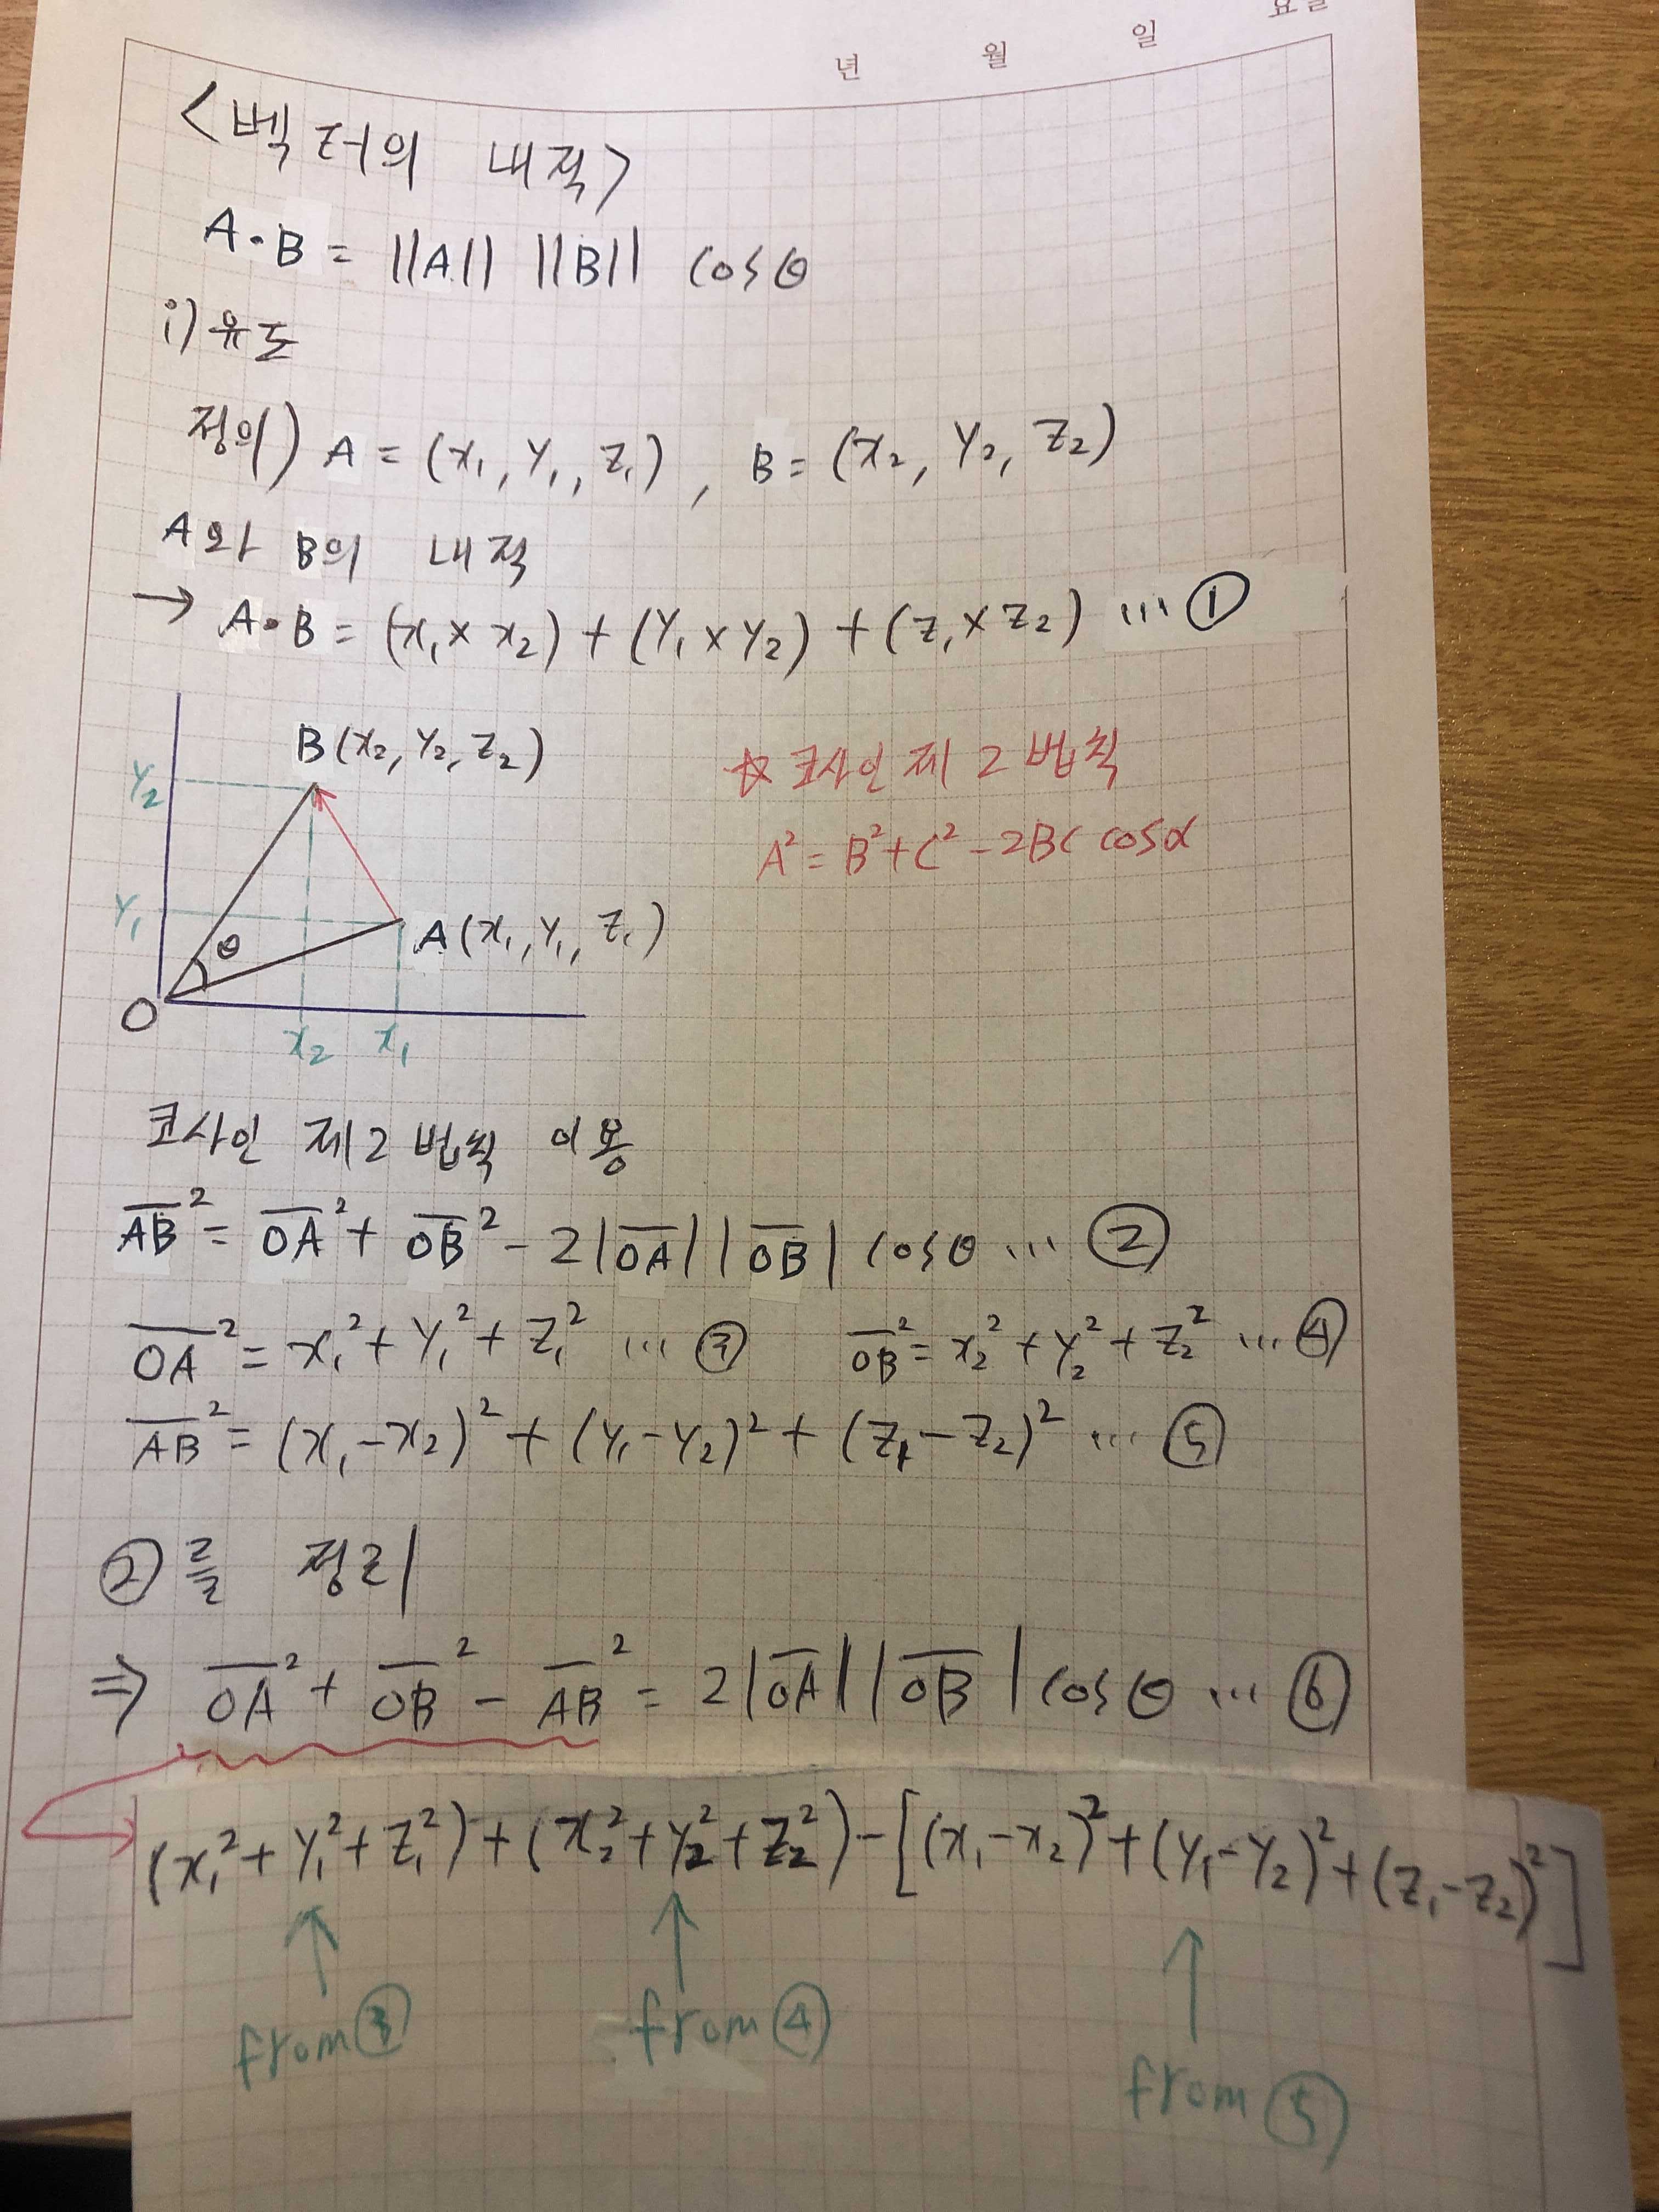 년 월 일 요일
<벡터의 내적>
A·B = ||A|| ||B|| cosθ
i) 유도
정의) A = (x₁, y₁, z₁), B = (x₂, y₂, z₂)
A와 B의 내적
→ A·B = (x₁ × x₂) + (y₁ × y₂) + (z₁ × z₂) ... ①
B(x₂, y₂, z₂)
☆ 코사인 제 2 법칙
y₂
A² = B² + C² - 2BC cosα
y₁
θ
A(x₁, y₁, z₁)
O
x₂ x₁
코사인 제2 법칙 이용
A̅B̅² = O̅A̅² + O̅B̅² - 2|O̅A̅||O̅B̅| cosθ ... ②
O̅A̅² = x₁² + y₁² + z₁² ... ③ O̅B̅² = x₂² + y₂² + z₂² ... ④
A̅B̅² = (x₁ - x₂)² + (y₁ - y₂)² + (z₁ - z₂)² ... ⑤
② 를 정리
⇒ O̅A̅² + O̅B̅² - A̅B̅² = 2|O̅A̅||O̅B̅| cosθ ... ⑥
(x₁² + y₁² + z₁²) + (x₂² + y₂² + z₂²) - [(x₁ - x₂)² + (y₁ - y₂)² + (z₁ - z₂)²]
from ③ from ④ from ⑤